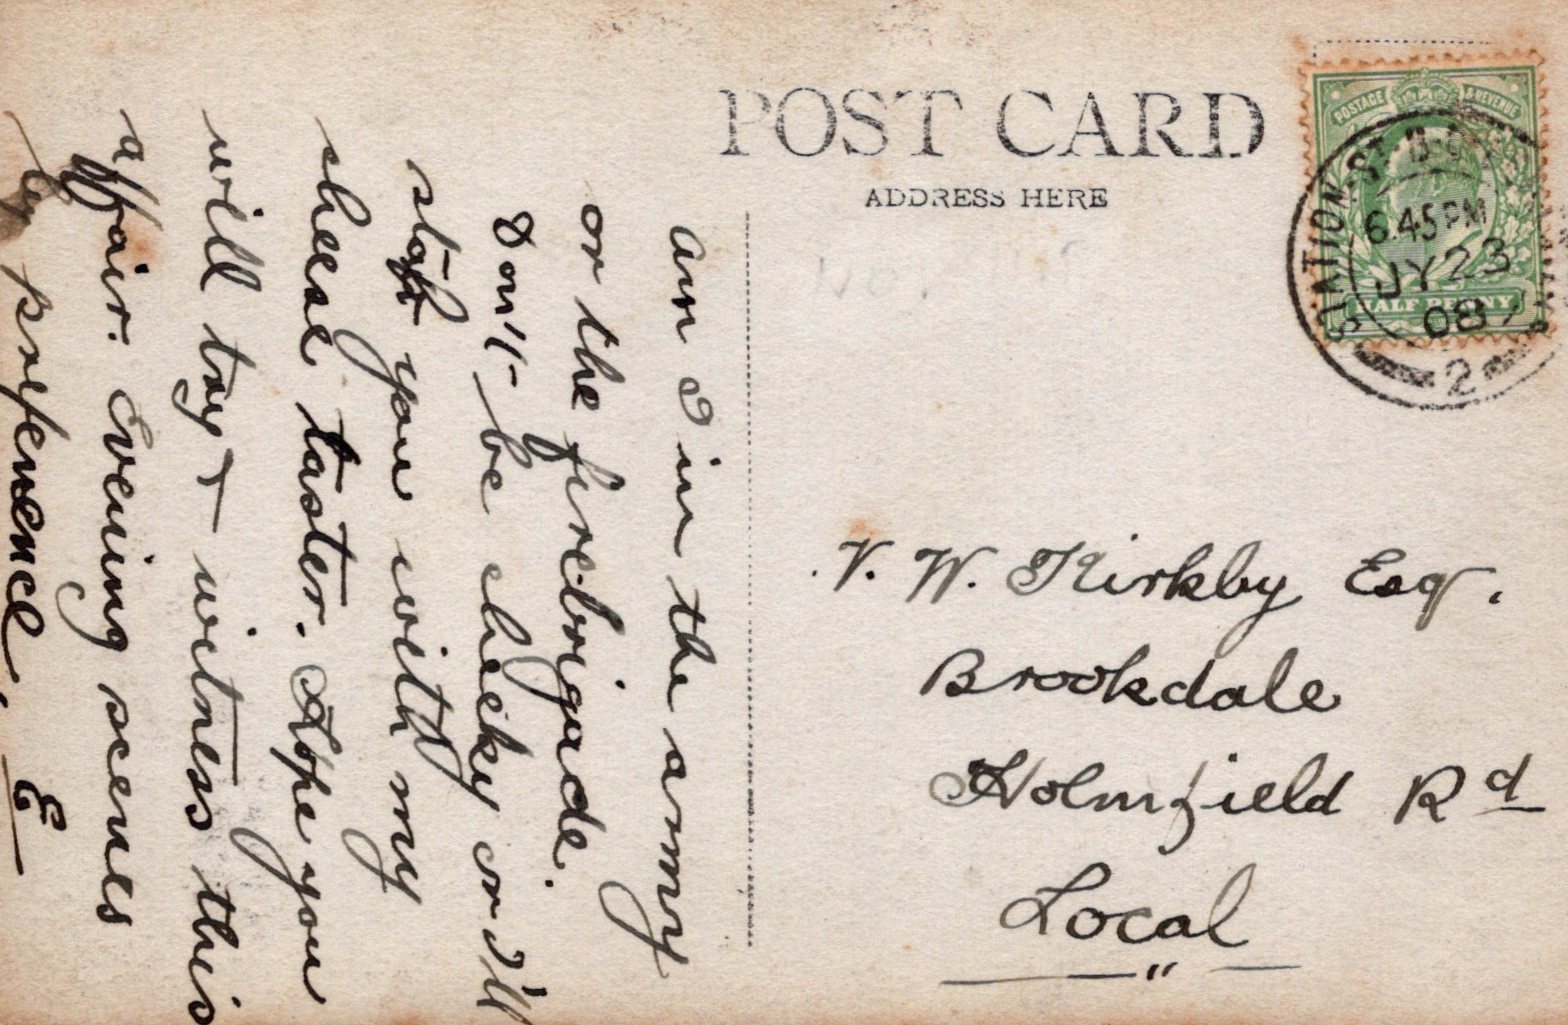 POST CARD
ADDRESS HERE
POSTAGE REVENUE
HALF PENNY
STATION ST
6.45 PM
JY 23
08
2
am I in the army
or the firebrigade.
Don't be cheeky or I'll
stab you with my
cheese taster. Hope you
will try + witness this
affair. Evening scenes
preference. E
V. W. Kirkby Esq.
Brookdale
Holmfield Rd
Local